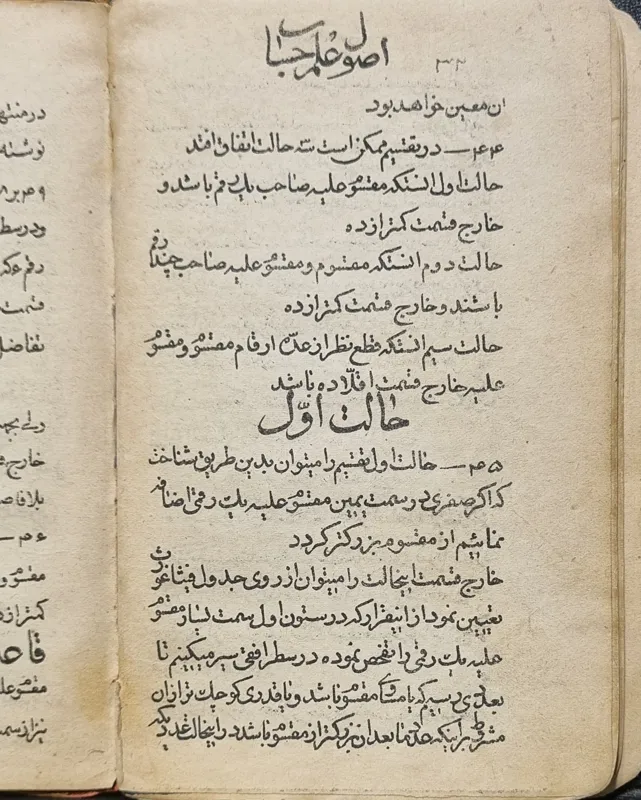 اصول علم حساب
۳۲
ان معین خواهد بود
۴۴ — در تقسیم ممکن است سه حالت اتفاق افتد
حالت اول انستکه مقسوم علیه صاحب یك رقم باشد و
خارج قسمت کمتر از ده
حالت دوم انستکه مقسوم و مقسوم علیه صاحب چند رقم
باشند و خارج قسمت کمتر از ده
حالت سیم انستکه قطع نظر از عدّه ارقام مقسوم و مقسوم
علیه خارج قسمت اقلّا ده باشد
حالت اوّل
۴۵ — حالت اول تقسیم را میتوان بدین طریق شناخت
که اگر صفری در سمت یمین مقسوم علیه یك رقمی اضافه
نماییم از مقسوم بزرکتر کردد
خارج قسمت اینحالت را میتوان از روی جدول فیثاغورث
تعیین نمود از اینقرار که در ستون اول سمت یسار مقسوم
علیه یك رقمی را تفحص نموده در سطر افقی سیر میکنیم تا
بعددی رسیم که یا مساوی مقسوم باشد و یا قدری کوچك تر از ان
مشروط بر اینکه عدد ما بعد ان بزرکتر از مقسوم باشد در اینحالت عددیکه
در منتهی
نوشته
ودر سطر
رقم
قسمت
تفاضل
خارج
مقسوم و
کمتر از
مقسوم علیه
نیز از سمت